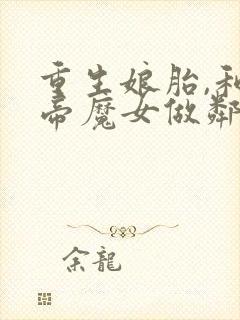 重生娘胎,和
帝魔女做鄰
余龍